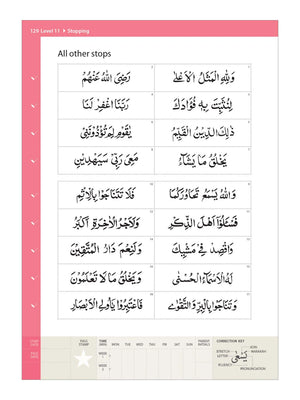 129 Level 11 Stopping
All other stops
وَلِلّٰهِ الْمَثَلُ الْاَعْلٰى
رَضِيَ اللّٰهُ عَنْهُمْ
لِنُثَبِّتَ بِهٖ فُؤَادَكَ
رَبَّنَا اغْفِرْ لَنَا
ذٰلِكَ الدِّيْنُ الْقَيِّمُ
يٰقَوْمِ لِمَ تُؤْذُوْنَنِيْ
يَخْلُقُ مَا يَشَآءُ
مَعِيَ رَبِّيْ سَيَهْدِيْنِ
وَاللّٰهُ يَسْمَعُ تَحَاوُرَكُمَا
فَلَا تَتَنَاجَوْا بِالْاِثْمِ
فَسْـَٔلُوْٓا اَهْلَ الذِّكْرِ
وَلَاَجْرُ الْاٰخِرَةِ اَكْبَرُ
وَاقْصِدْ فِيْ مَشْيِكَ
وَلَنِعْمَ دَارُ الْمُتَّقِيْنَ
لَهُ الْاَسْمَآءُ الْحُسْنٰى
وَيَخْلُقُ مَا لَا تَعْلَمُوْنَ
وَتَنَاجَوْا بِالْبِرِّ وَالتَّقْوٰى
فَاعْتَبِرُوْا يٰٓاُولِي الْاَبْصَارِ
START DATE
PAGE STAMP
TIME (MIN)
MON TUE WED THU FRI SAT SUN
PARENT INITIALS
CORRECTION KEY
WEEK 1
WEEK 2
STRETCH
LETTER
FLUENCY
JOIN
HARAKAH
PRONUNCIATION